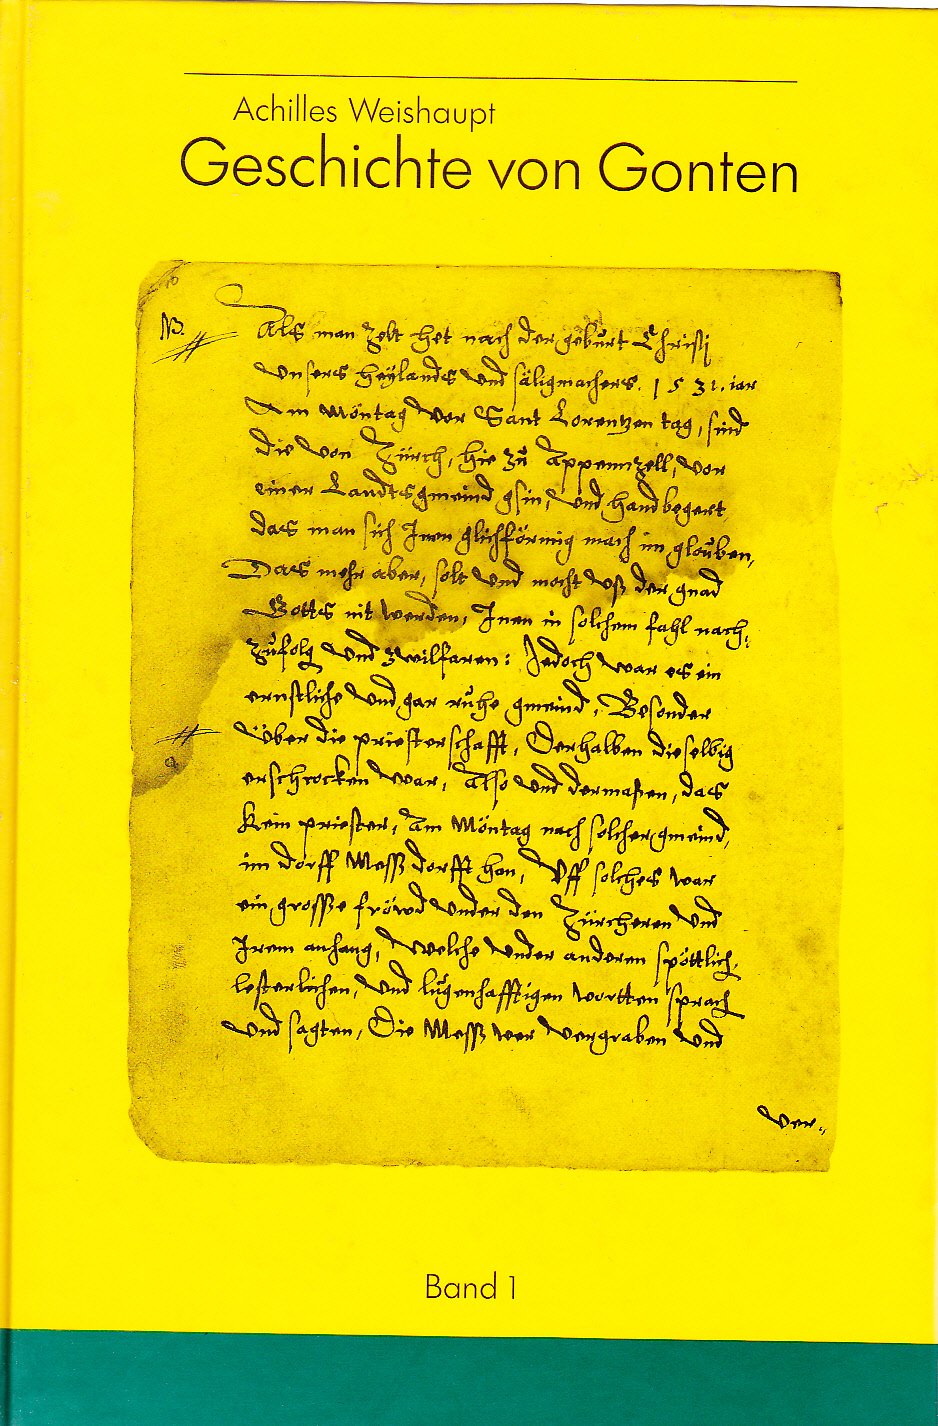 Achilles Weishaupt
Geschichte von Gonten
NB.
Als man zelt het nach der gebürt Christj
Unsers heÿlands und säligmachers. 1531. iar
Am Möntag vor Sant Lorentzen tag, sind
die von Zürch, hie zů Appennzell, vor
einer Landtsgmeind gsin, und hand begert
das man sich Inen glichförmig mach im glouben,
Das mehr aber, solt und mocht uß der gnad
Gottes nit werden, Inen in solchem fahl nach-
zůfolg und zwilfaren: Jedoch war es ein
ernstliche und gar růhe gmeind, Besonder
Über die priesterschafft, Derhalben dieselbig
erschrocken war, Also und dermaßen, das
Kein priester, Am Möntag nach solcher gmeind,
im dorff Mess dorfft hon, Uff solches war
ein grosse fröwd under den Zürcheren und
Irem anhang, Welche under anderen spöttlich,
lesterlichen, und lugenhafftigen wortten sprach
und sagten, Die Mess wer vergraben und
ver-
Band 1